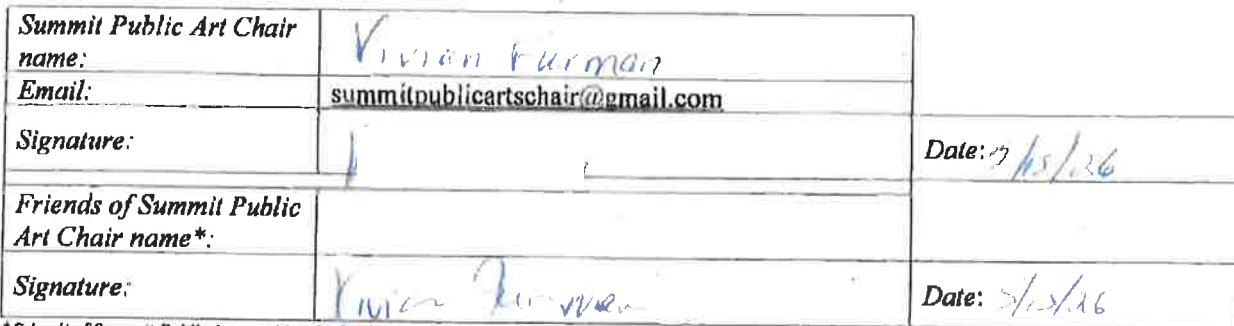 Summit Public Art Chair
name: Vivian Furman
Email: summitpublicartschair@gmail.com
Signature:
Date: 3/15/26
Friends of Summit Public
Art Chair name*:
Signature: Vivian Furman
Date: 3/15/26